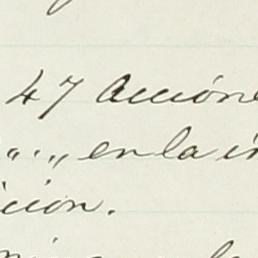 47 Accióne
" . " en la i
ción.